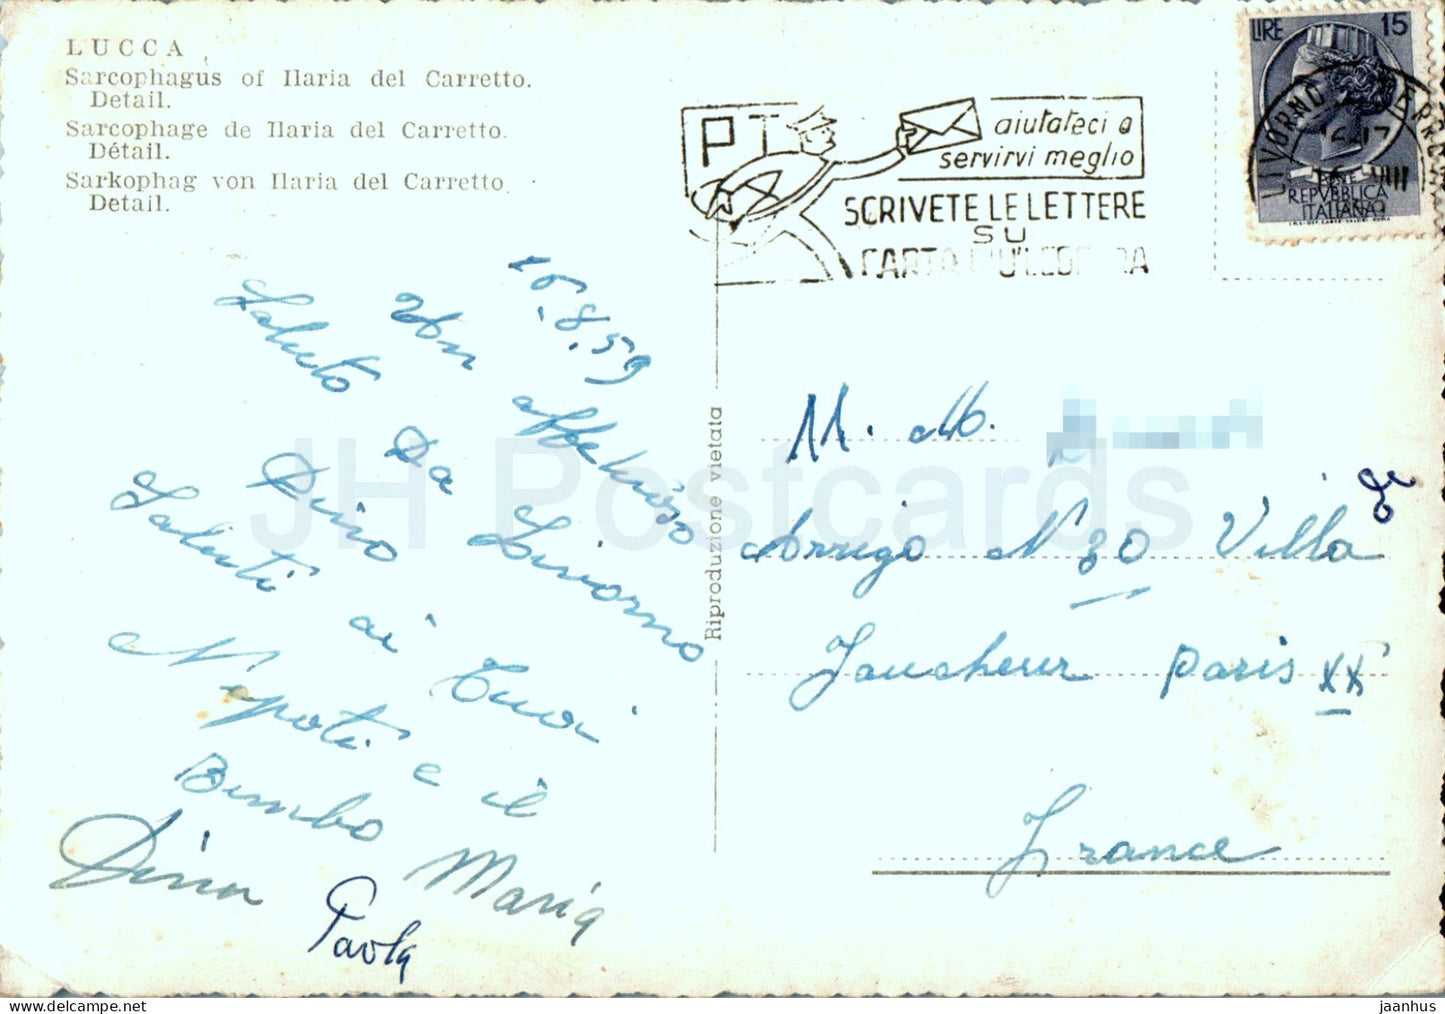 LUCCA
Sarcophagus of Ilaria del Carretto.
Detail.
Sarcophage de Ilaria del Carretto.
Détail.
Sarkophag von Ilaria del Carretto.
Detail.
PT
aiutateci a
servirvi meglio
SCRIVETE LE LETTERE
SU
LIRE 15
POSTE
REPVBBLICA
ITALIANA
LIVORNO
16.8.59
Un affettuoso
Saluto Da Livorno
Dino
Saluti ai tuoi
Nepoti e il
Bimbo Maria
Dina
Paola
Riproduzione vietata
M. M.
Arrigo N 30 Villa
Faucheur Paris XX
France
JH Postcards
jaanhus | delcampe.net